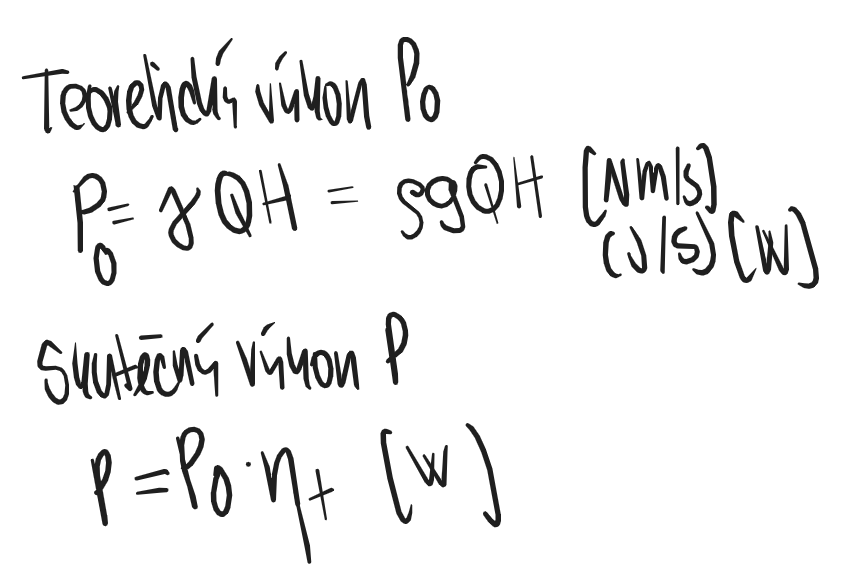 Teoretický výkon P₀
P₀ = γQH = ρgQH [Nm/s]
(J/s) [W]
Skutečný výkon P
P = P₀ · ηₜ [W]